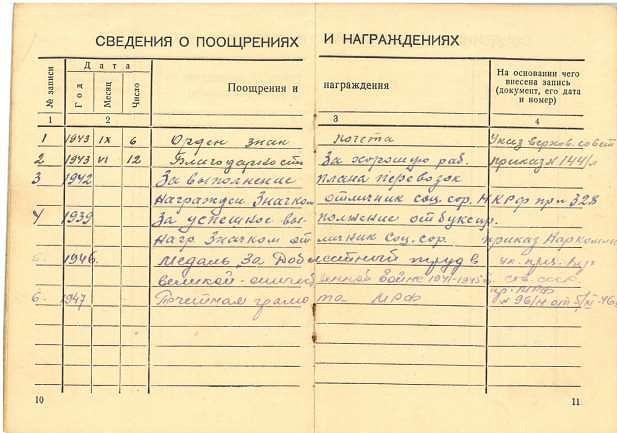 СВЕДЕНИЯ О ПООЩРЕНИЯХ И НАГРАЖДЕНИЯХ
№ записи Дата Год Месяц Число Поощрения и награждения На основании чего внесена запись (документ, его дата и номер)
1 2 3 4
1 1943 IX 6 Орден знак почета Указ верхов. совет
2 1943 VI 12 Благодарность За хорошую раб. приказ № 144/л
3 1942 За выполнение плана перевозок
Награжден Значком отличник соц. сор. НКРФ пр. 328
4 1939 За успешное выполнение отбуксир.
Нагр Значком отличник Соц. сор. приказ
5 1946 Медаль За Доблестный труд в
великой отечественной войне 1941-1945
6 1947 Почетная грамота МРФ пр. МРФ
№ 96/н от
10 11